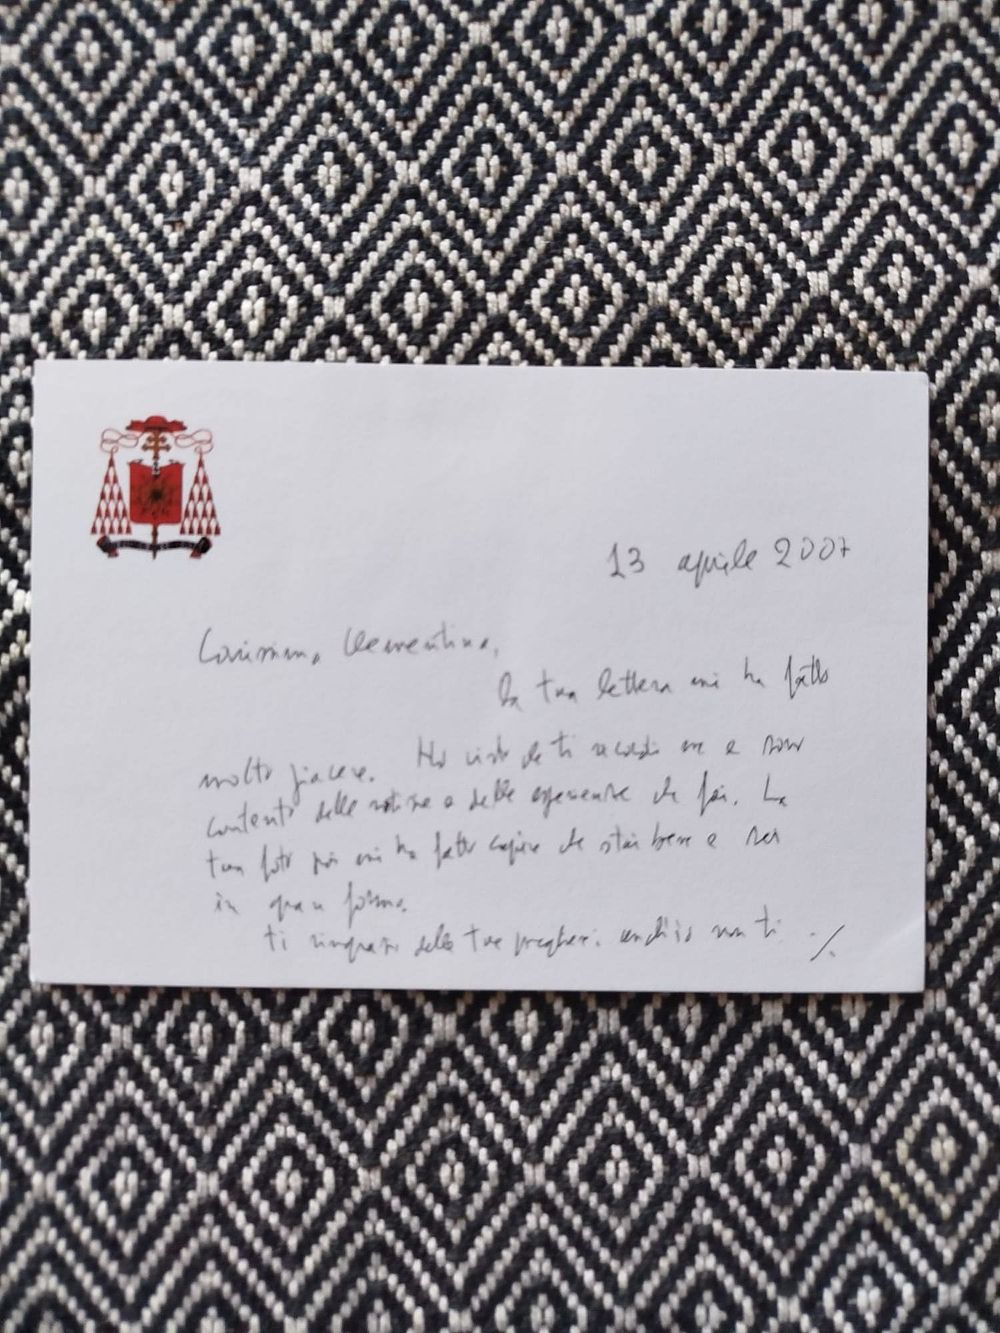 13 aprile 2007
Carissima Clementina,
la tua lettera mi ha fatto
molto piacere. Ho visto che ti ricordi me e sono
contento delle notizie e delle esperienze che fai. La
tua foto poi mi ha fatto capire che stai bene e sei
in gran forma.
Ti ringrazio delle tue preghiere. Anch'io non ti ./.